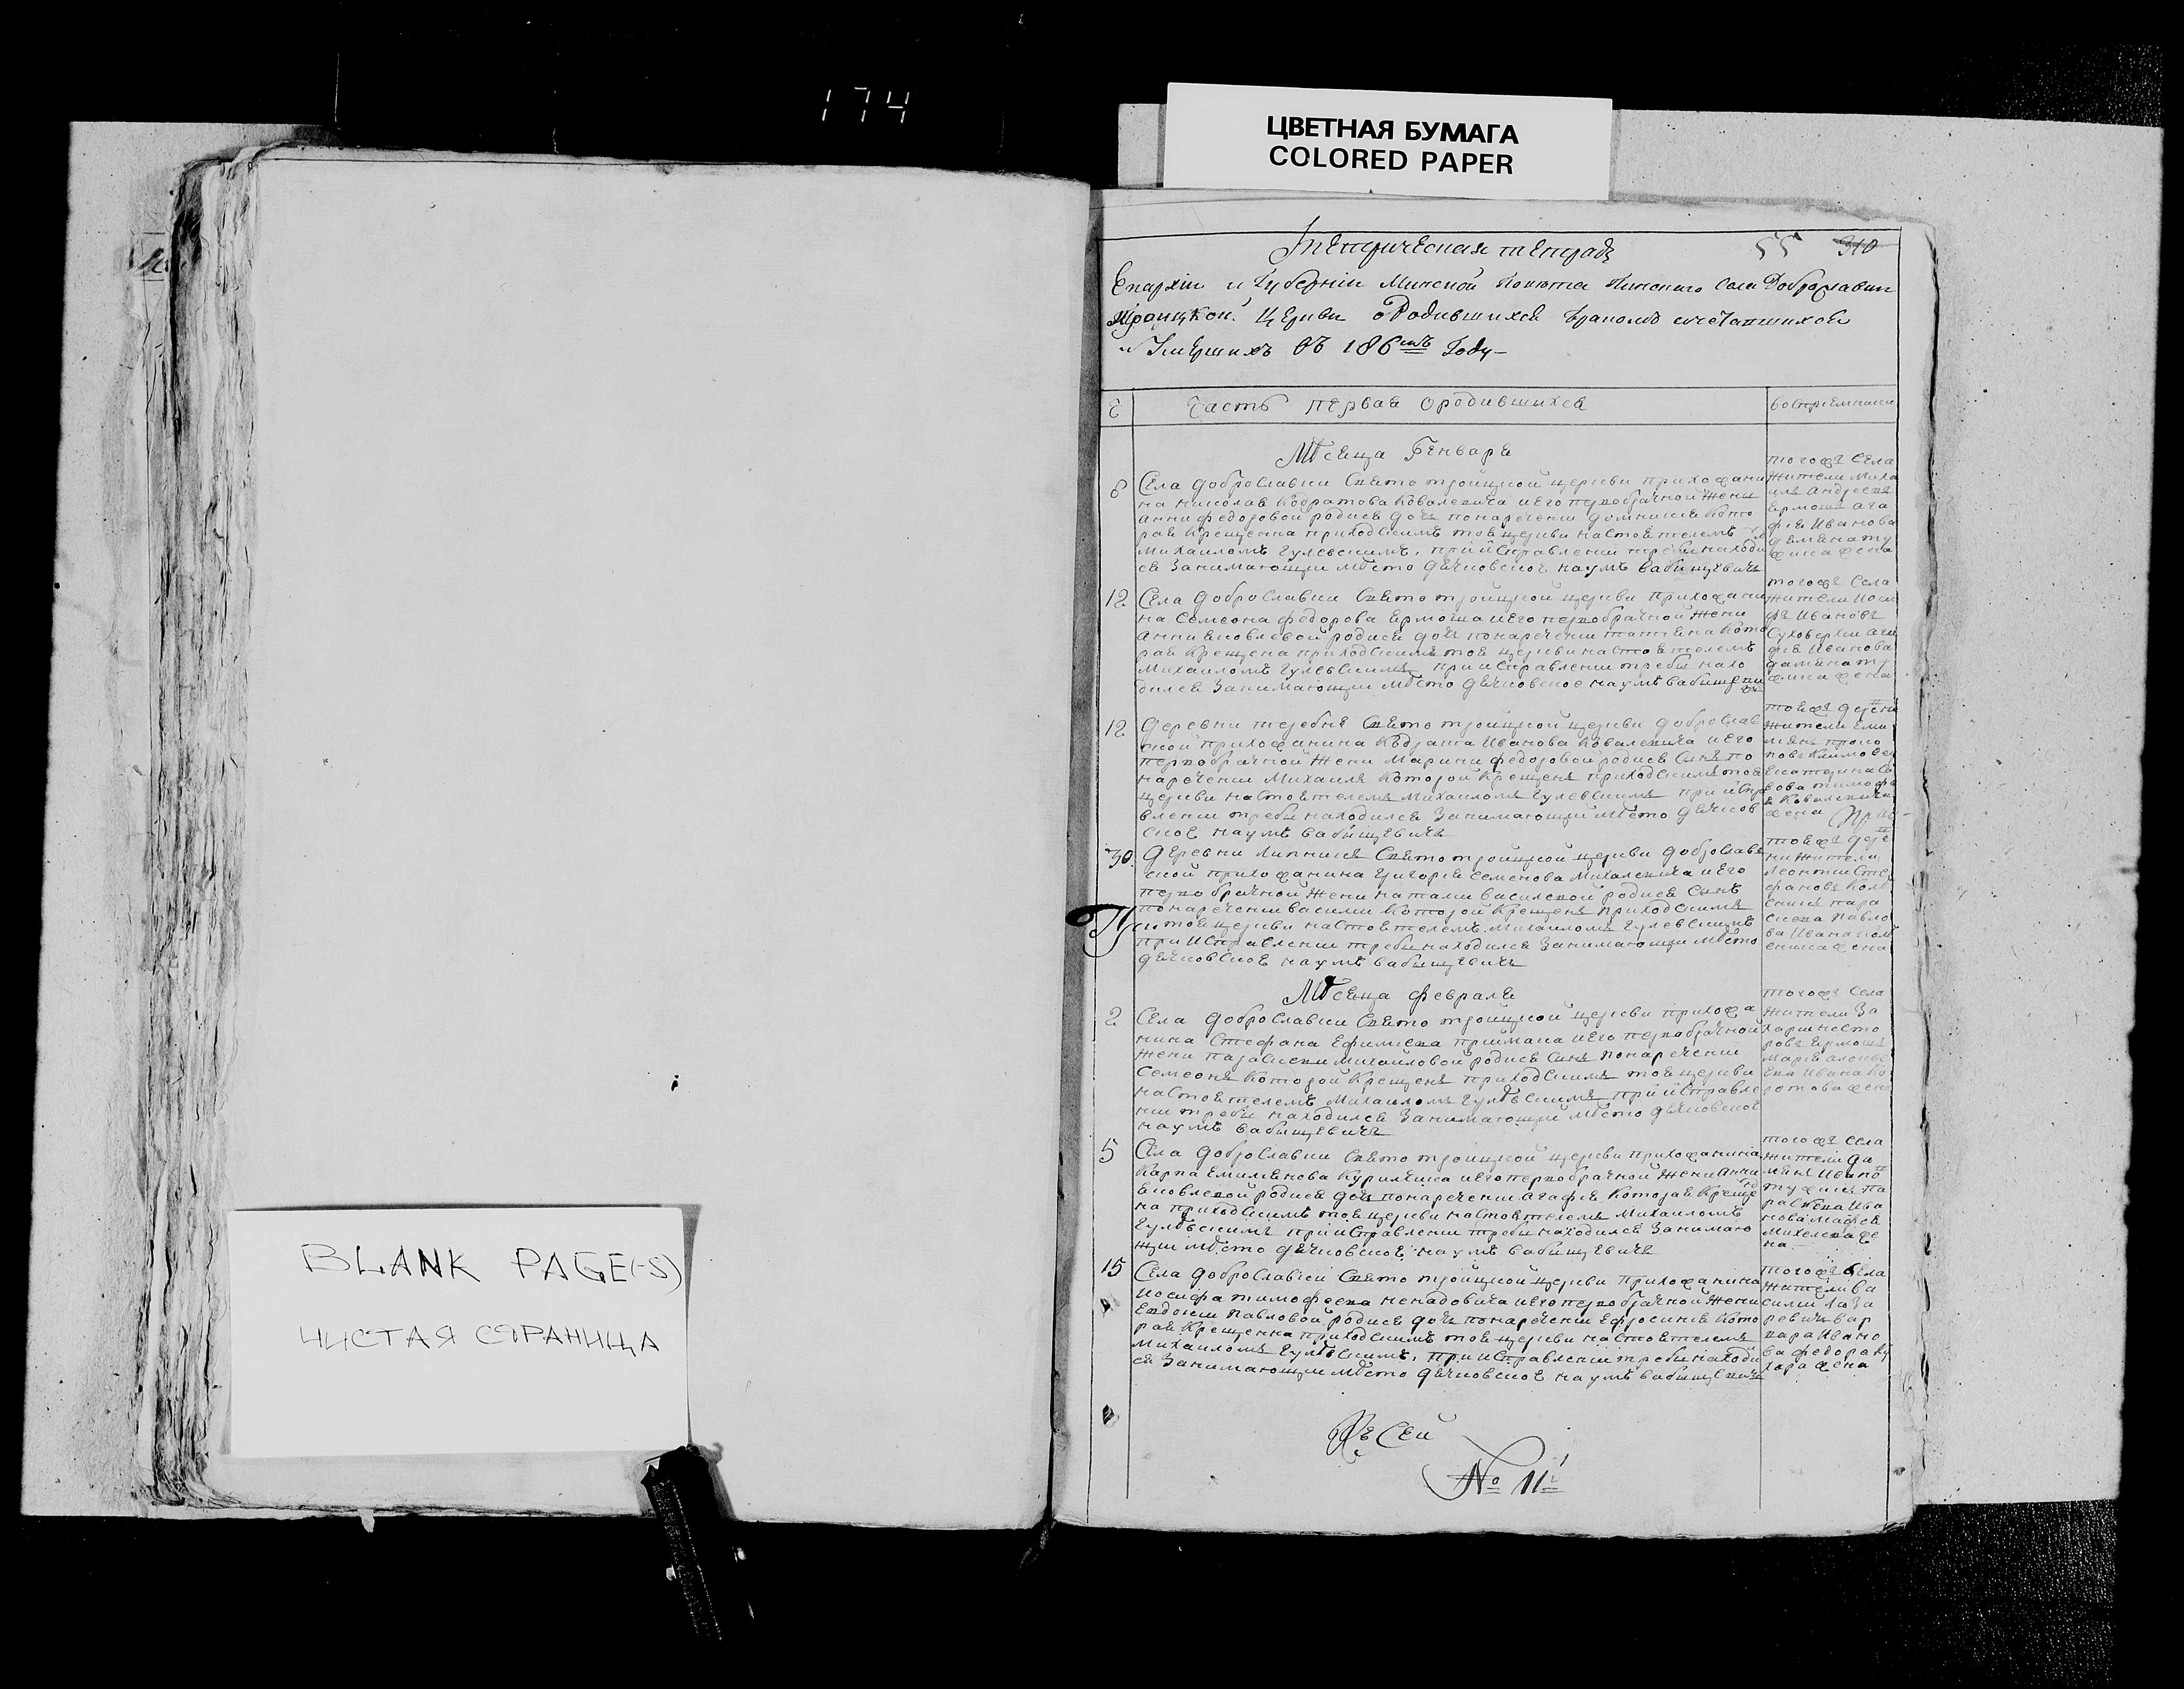 174
ЦВЕТНАЯ БУМАГА
COLORED PAPER
тетрадь 55 310
Епархіи и Губерніи Минской Повѣта Пинского Села Доброславки
Троицкой Церкви о Родившихся браком сочетавшихся
и Умершихъ въ 186 Году
Часть первая о родившихся
воспріемники
Мѣсеца Генваря
8 Села доброславки Свято троицкой церкви прихожани
на николая Ковалевича и его первобрачной жени
анни федоровой родися дочъ понаречени домникия кото
рая крещенна приходскимъ тоя церкви настоятелемъ
михаиломъ гулевскимъ, при исправлении требы находи
ся занимающи мѣсто дячковское наумъ бабищевичъ
того жъ села
жители миха
илъ андреевъ
ермошъ ага
фия иванова
жена
12 Села доброславки Свято троицкой церкви прихожани
на Семеона федорова ермоша и его первобрачной жени
анни яковлевой родися дочъ понаречени татияна кото
рая крещена приходскимъ тоя церкви настоятелемъ
михаиломъ гулевскимъ при исправлении требы нахо
дился занимающи мѣсто дячковское наумъ бабищеви
чъ
того жъ села
жители иоси
фъ ивановъ
ага
фия иванова
жена
12 деревни теребня Свято троицкой церкви доброслав
ской прихожанина иванова ковалевича и его
первобрачной жени марини федоровой родися синъ по
наречени михаилъ которой крещенъ приходскимъ тоя
церкви настоятелемъ михаиломъ гулевскимъ при испр
влении требы находился занимающи мѣсто дячков
ское наумъ бабищевичъ
тоя жъ
жители
екатерина
ковалевича
жена
30 деревни липники Свято троицкой церкви доброслав
ской прихожанина григория семенова михалевича и его
первобрачной жени наталии василевой родися синъ
понаречени василии которой крещенъ приходскимъ
тоя церкви настоятелемъ михаиломъ гулевскимъ
при исправлении требы находился занимающи мѣсто
дячковское наумъ бабищевичъ
тоя жъ дере
вни жители
леонтии сте
фановъ
пара
скева павло
ва
жена
Мѣсеца февраля
2 Села доброславки Свято троицкой церкви прихожа
нина Стефана ефимиева приймака и его первобрачной
жени параскеви михаиловой родися синъ понаречени
семеонъ которой крещенъ приходскимъ тоя церкви
настоятелемъ михаиломъ гулѣвскимъ при исправле
нии требы находился занимающи мѣсто дячковское
наумъ бабищевичъ
того жъ села
жители за
хари несто
ровъ ермошъ
мария алексе
ева ивана ко
ротова жена
5 Села доброславки Свято троицкой церкви прихожанина
карпа емилиянова и его первобрачной жени анни
яковлевой родися дочъ понаречени агафия которая креще
на приходскимъ тоя церкви настоятелемъ михаиломъ
гулѣвскимъ при исправлении требы находился занимаю
щи мѣсто дячковское наумъ бабищевичъ
того жъ села
жители да
миянъ ивано
па
раскева ива
нова
жена
15 Села доброславки Свято троицкой церкви прихожанина
иосифа тимофеева ненадовича и его первобрачной жени
евдокии павловой родися дочъ понаречени ефросиния кото
рая крещенна приходскимъ тоя церкви настоятелемъ
михаиломъ гулѣвскимъ, при исправлении требы находи
ся занимающи мѣсто дячковское наумъ бабищевичъ
того жъ села
жители ва
силии лоза
ревичъ вар
вара ивано
ва федора ку
хара жена
№ 11
BLANK PAGE(-S)
ЧИСТАЯ СТРАНИЦА